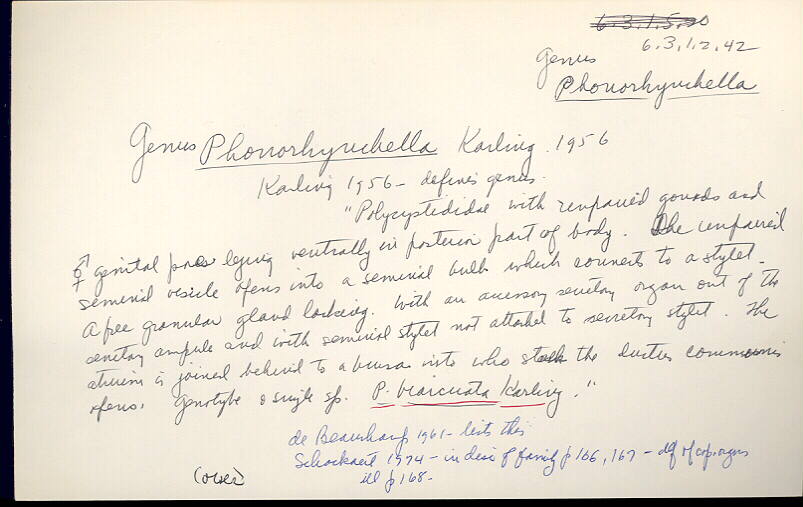 6.3.1.5.20
6.3.1.2.42
Genus
Phonorhynchella
Genus Phonorhynchella Karling 1956
Karling 1956 - defines genus.
"Polycystididae with unpaired gonads and
genital pores lying ventrally in posterior part of body. The unpaired
seminal vesicle opens into a seminal bulb which connects to a stylet.
A free granular gland lacking. With an accessory secretory organ out of the
genitary ampule and with seminal stylet not attached to secretory stylet. The
atrium is joined behind to a bursa into who stalk the ductus communis
opens. Genotype & single sp. P. biarcuata Karling."
de Beauchamp 1961 - lists this
Schockaert 1974 - in disc of family p 166, 167 - df of cop. organs
ill p 168.
(over)